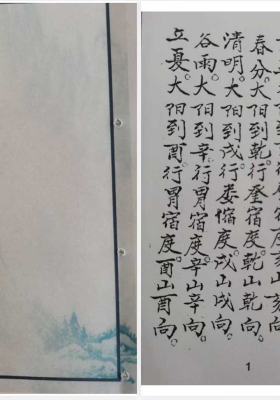 春分。大阳到乾。行登宿度。乾山乾向。
清明。大阳到戌行娄宿度。戌山戌向。
谷雨。大阳到辛。行胃宿度。辛山辛向。
立夏。大阳到酉。行胃宿度。酉山酉向。
1